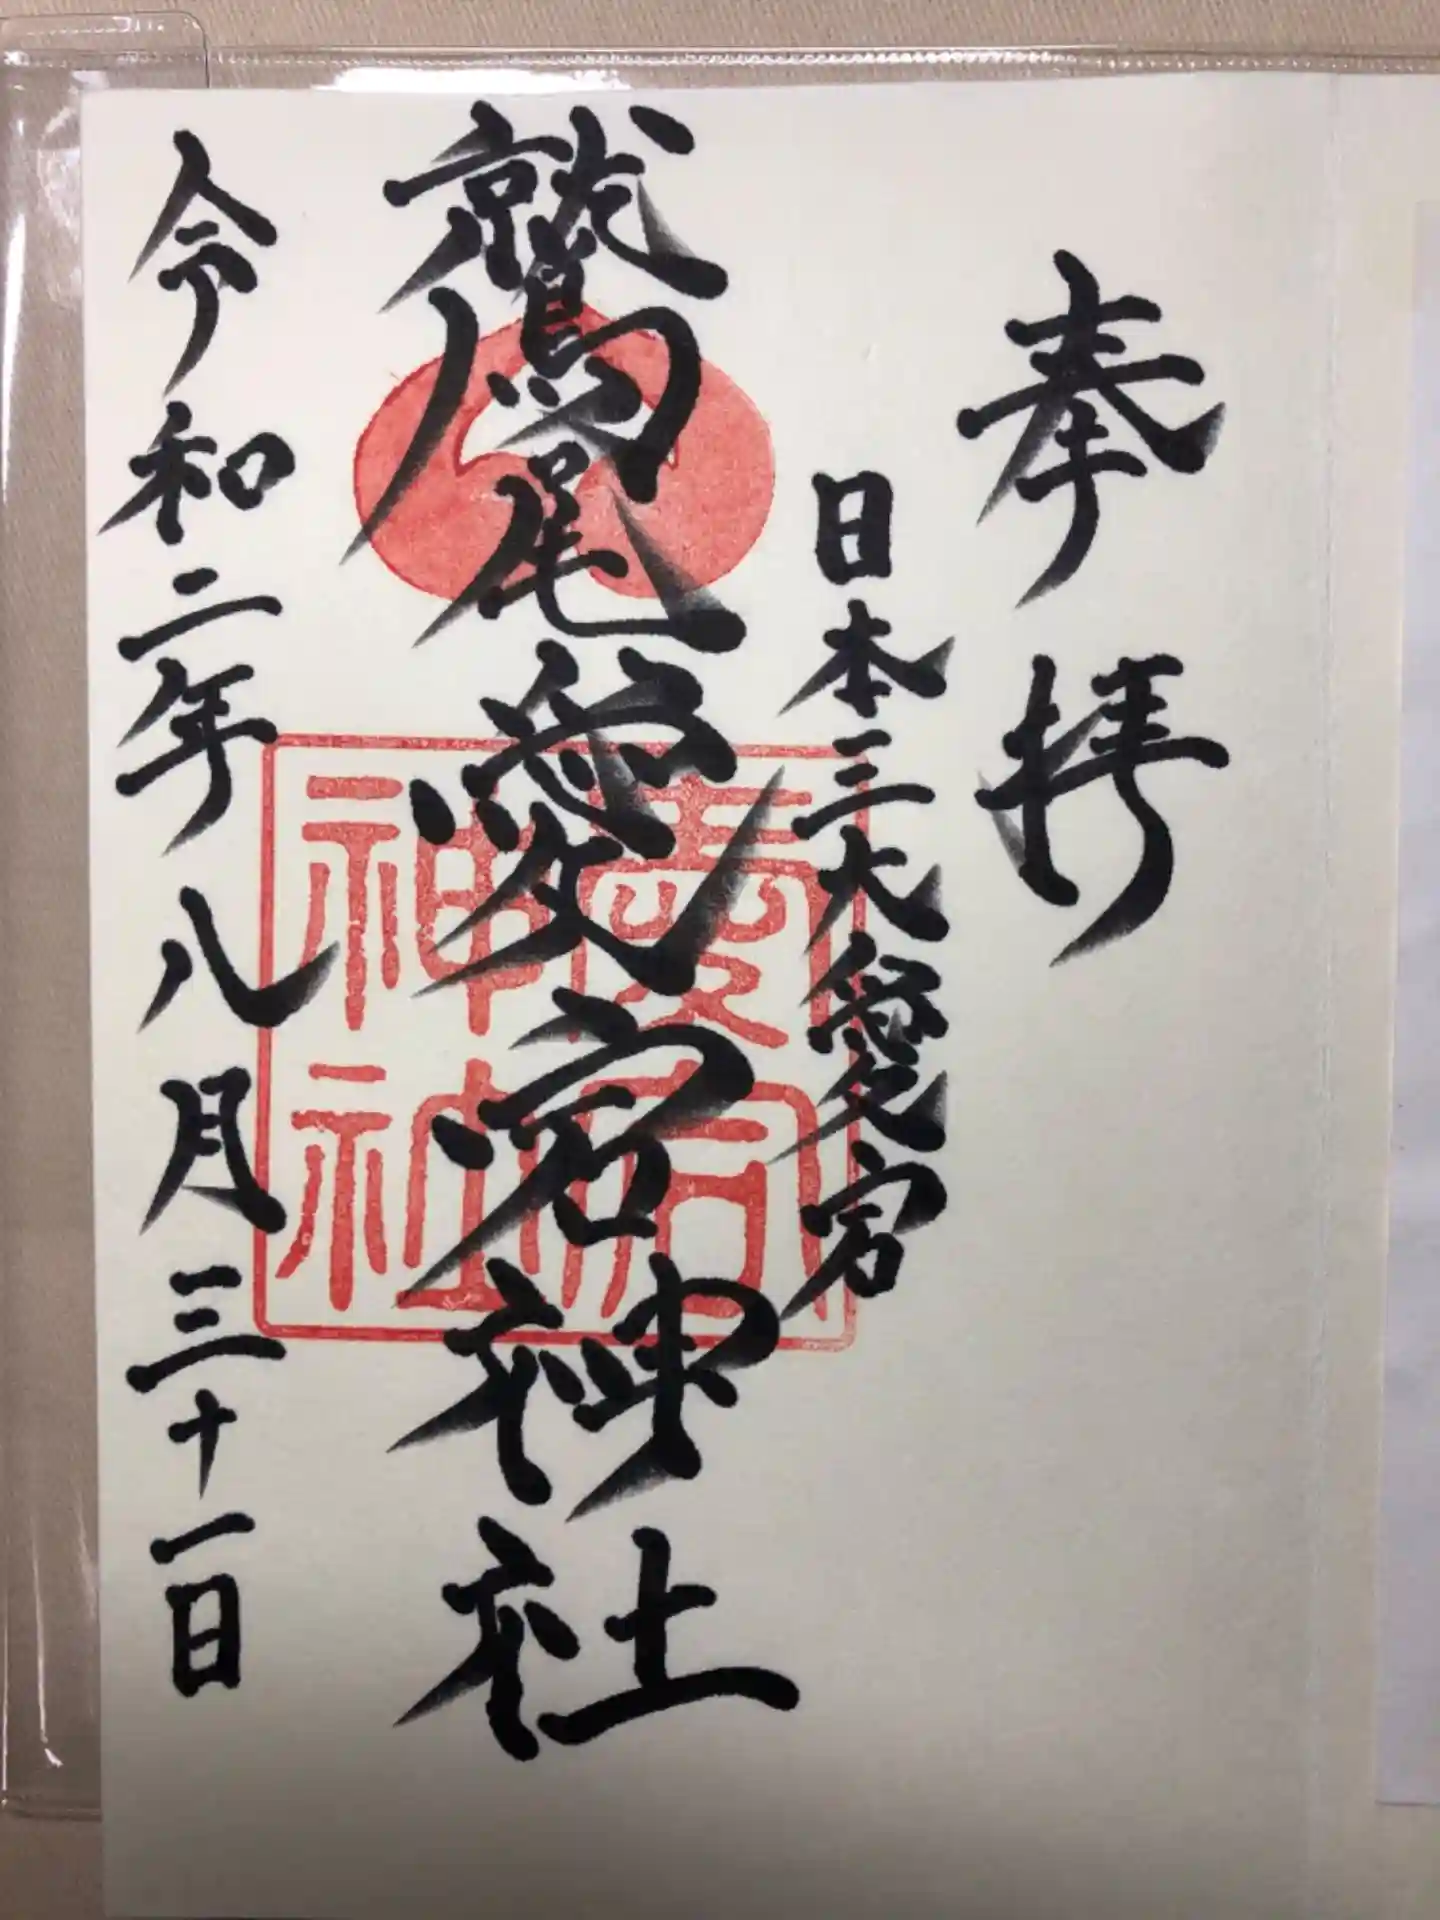 奉拝
日本三大愛宕
鷲尾愛宕神社
愛宕神社
令和二年八月三十一日